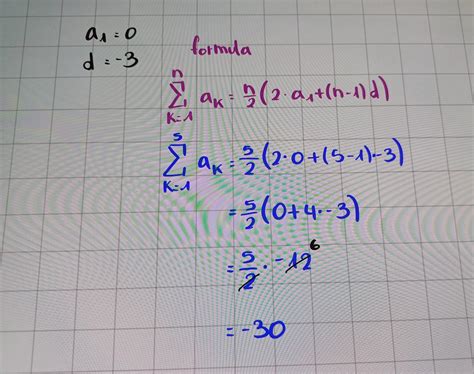 a₁ = 0
d = -3
formula
n
∑ aₖ = n/2 (2·a₁+(n-1)d)
K=1
5
∑ aₖ = 5/2 (2·0+(5-1)·-3)
K=1
= 5/2 (0+4·-3)
= 5/2 · -12 6
= -30